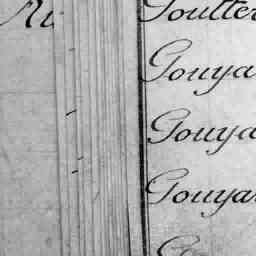 Goutter
Gouya
Gouya
Gouya